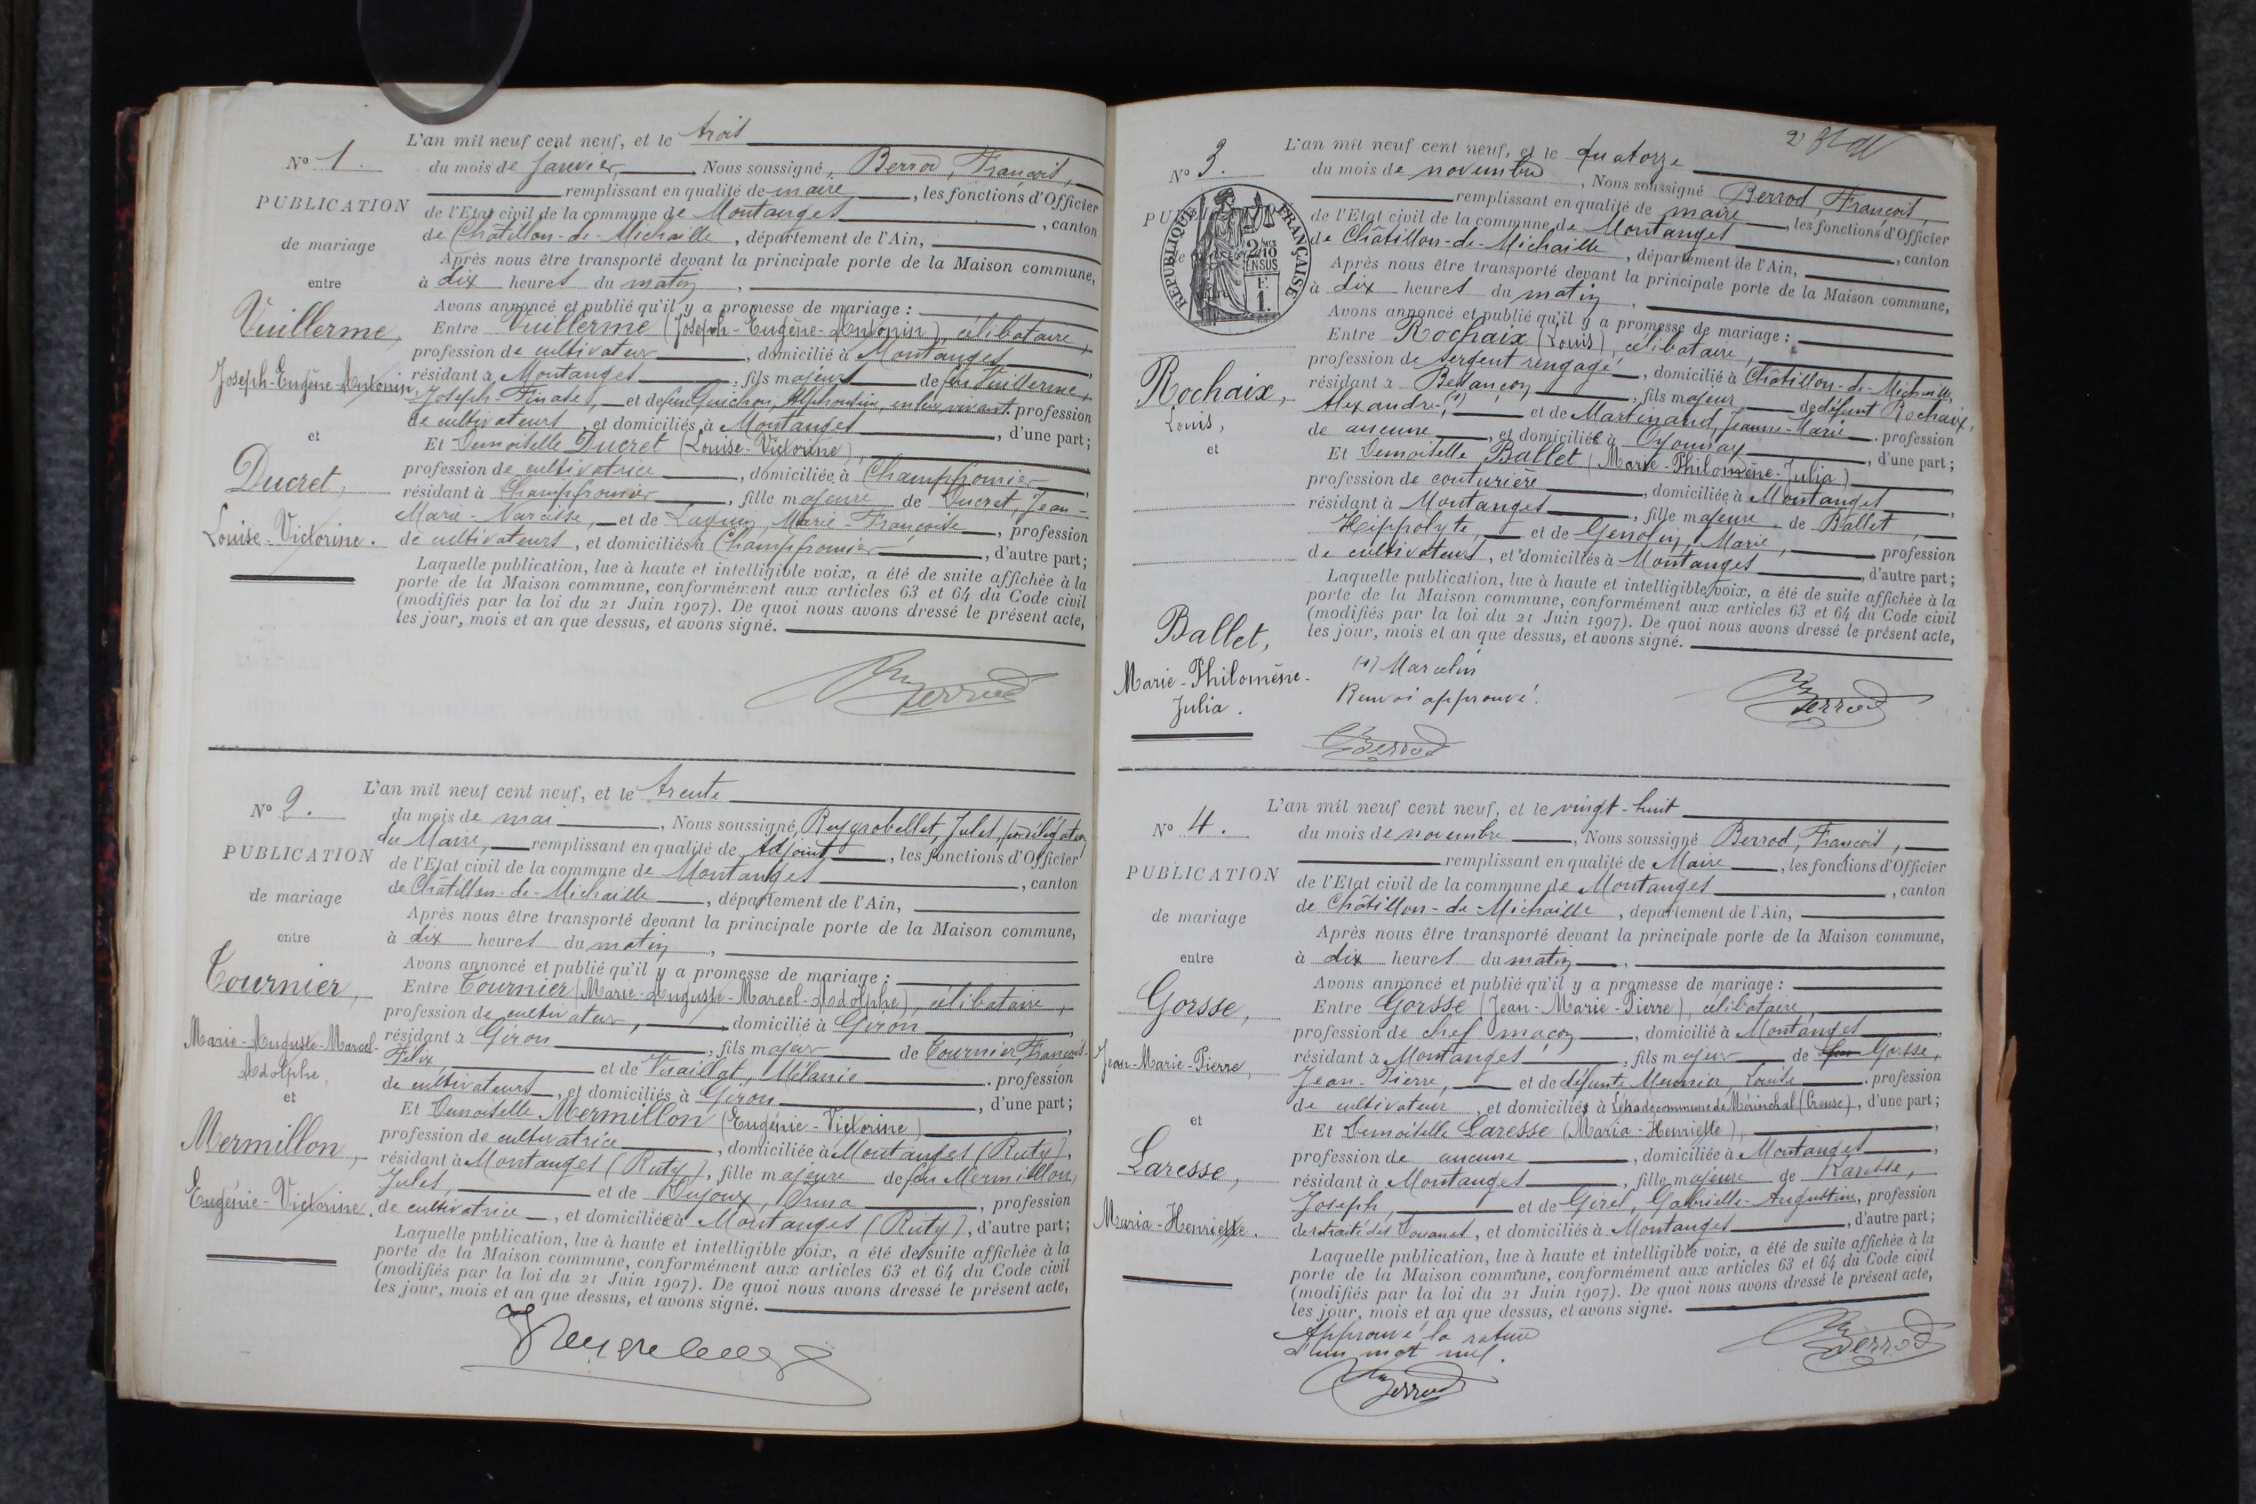 L'an mil neuf cent neuf, et le trois
N° 1.
du mois de Janvier, Nous soussigné, Berrod, François,
remplissant en qualité de maire, les fonctions d'Officier
PUBLICATION
de l'Etat civil de la commune de Montanges, canton
de Châtillon-de-Michaille, département de l'Ain,
de mariage
Après nous être transporté devant la principale porte de la Maison commune,
entre
à dix heures du matin,
Avons annoncé et publié qu'il y a promesse de mariage :
Vuillerme,
Entre Vuillerme (Joseph-Eugène-Antonin), célibataire,
profession de cultivateur, domicilié à Montanges,
Joseph-Eugène-Antonin
résidant à Montanges, fils majeur de feu Vuillerme,
Joseph et de feue Guichon, Alphonsine, en leur vivant profession
de cultivateurs, et domiciliés à Montanges, d'une part ;
et
Et Demoiselle Ducret (Louise-Victorine),
Ducret,
profession de cultivatrice, domiciliée à Champfromier,
résidant à Champfromier, fille majeure de Ducret, Jean-
Marie-Narcisse, et de Marie-Françoise, profession
Louise-Victorine.
de cultivateurs, et domiciliés à Champfromier, d'autre part ;
Laquelle publication, lue à haute et intelligible voix, a été de suite affichée à la
porte de la Maison commune, conformément aux articles 63 et 64 du Code civil
(modifiés par la loi du 21 Juin 1907). De quoi nous avons dressé le présent acte,
les jour, mois et an que dessus, et avons signé.
Berrod
L'an mil neuf cent neuf, et le trente
N° 2.
du mois de mai, Nous soussigné, Reygrobellet, Jules, par délégation
du Maire, remplissant en qualité de Adjoint, les fonctions d'Officier
PUBLICATION
de l'Etat civil de la commune de Montanges, canton
de Châtillon-de-Michaille, département de l'Ain,
de mariage
Après nous être transporté devant la principale porte de la Maison commune,
entre
à dix heures du matin,
Avons annoncé et publié qu'il y a promesse de mariage :
Tournier,
Entre Tournier (Marie-Auguste-Marcel-Adolphe), célibataire,
profession de cultivateur, domicilié à Giron,
Marie-Auguste-Marcel-
résidant à Giron, fils majeur de Tournier, François-
Adolphe,
Félix, et de Vuaillat, Mélanie, profession
et
de cultivateurs, et domiciliés à Giron, d'une part ;
Et Demoiselle Mermillon (Eugénie-Victorine),
Mermillon,
profession de cultivatrice, domiciliée à Montanges (Ruty),
résidant à Montanges (Ruty), fille majeure de feu Mermillon,
Jules, et de Dujoux, profession
Eugénie-Victorine.
de cultivatrice, et domiciliée à Montanges (Ruty), d'autre part ;
Laquelle publication, lue à haute et intelligible voix, a été de suite affichée à la
porte de la Maison commune, conformément aux articles 63 et 64 du Code civil
(modifiés par la loi du 21 Juin 1907). De quoi nous avons dressé le présent acte,
les jour, mois et an que dessus, et avons signé.
L'an mil neuf cent neuf, et le quatorze
N° 3.
du mois de novembre, Nous soussigné Berrod, François,
remplissant en qualité de maire, les fonctions d'Officier
de l'Etat civil de la commune de Montanges, canton
de Châtillon-de-Michaille, département de l'Ain,
RÉPUBLIQUE FRANÇAISE
Après nous être transporté devant la principale porte de la Maison commune,
à dix heures du matin,
Avons annoncé et publié qu'il y a promesse de mariage :
Entre Rochaix (Louis), célibataire,
profession de sergent rengagé, domicilié à Châtillon-de-Michaille,
Rochaix,
résidant à Besançon, fils majeur de défunt Rochaix,
Louis,
Alexandre, (1) et de Martinand, Jeanne-Marie, profession
de aucune, et domiciliée à Oyonnax, d'une part ;
et
Et Demoiselle Ballet (Marie-Philomène-Julia),
profession de couturière, domiciliée à Montanges,
résidant à Montanges, fille majeure de Ballet,
Hippolyte, et de Gendin, Marie, profession
de cultivateurs, et domiciliés à Montanges, d'autre part ;
Laquelle publication, lue à haute et intelligible voix, a été de suite affichée à la
porte de la Maison commune, conformément aux articles 63 et 64 du Code civil
(modifiés par la loi du 21 Juin 1907). De quoi nous avons dressé le présent acte,
les jour, mois et an que dessus, et avons signé.
Ballet,
Marie-Philomène-
Julia.
(1) Marcelin
Renvoi approuvé.
Berrod
Berrod
L'an mil neuf cent neuf, et le vingt-huit
N° 4.
du mois de novembre, Nous soussigné Berrod, François,
remplissant en qualité de Maire, les fonctions d'Officier
PUBLICATION
de l'Etat civil de la commune de Montanges, canton
de Châtillon-de-Michaille, département de l'Ain,
de mariage
Après nous être transporté devant la principale porte de la Maison commune,
entre
à dix heures du matin,
Avons annoncé et publié qu'il y a promesse de mariage :
Gorsse,
Entre Gorsse (Jean-Marie-Pierre), célibataire
profession de chef maçon, domicilié à Montanges,
Jean-Marie-Pierre,
résidant à Montanges, fils majeur de feu Gorsse,
Jean-Pierre, et de défunte Meunier, Louise, profession
de cultivateur, et domiciliés à commune de Mérinchal (Creuse), d'une part ;
et
Et Demoiselle Laresse (Maria-Henriette),
Laresse,
profession de aucune, domiciliée à Montanges,
résidant à Montanges, fille majeure de Laresse,
Joseph, et de Girel, Gabrielle-Augustine, profession
Maria-Henriette.
de retraité des Douanes, et domiciliés à Montanges, d'autre part ;
Laquelle publication, lue à haute et intelligible voix, a été de suite affichée à la
porte de la Maison commune, conformément aux articles 63 et 64 du Code civil
(modifiés par la loi du 21 Juin 1907). De quoi nous avons dressé le présent acte,
les jour, mois et an que dessus, et avons signé.
Approuvé la rature
d'un mot nul.
Berrod
Berrod